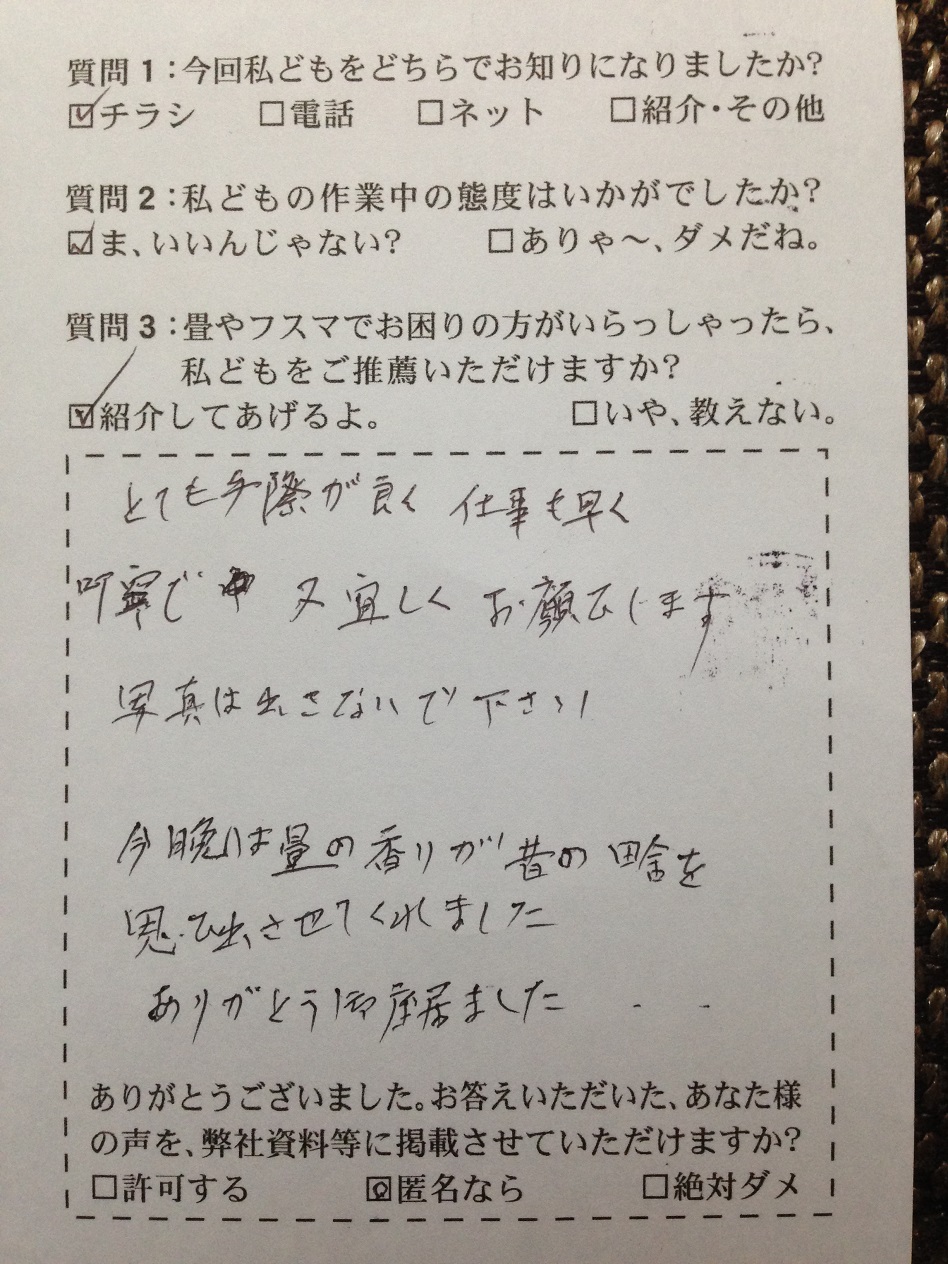 質問1:今回私どもをどちらでお知りになりましたか?
☑チラシ □電話 □ネット □紹介・その他
質問2:私どもの作業中の態度はいかがでしたか?
☑ま、いいんじゃない? □ありゃ〜、ダメだね。
質問3:畳やフスマでお困りの方がいらっしゃったら、
私どもをご推薦いただけますか?
☑紹介してあげるよ。 □いや、教えない。
とても手際が良く 仕事も早く
叮寧で 又宜しくお願ひします
写真は出さないで下さい
今晩は畳の香りが昔の田舎を
思ひ出させてくれました
ありがとう御座居ました - -
ありがとうございました。お答えいただいた、あなた様
の声を、弊社資料等に掲載させていただけますか?
□許可する ☑匿名なら □絶対ダメ